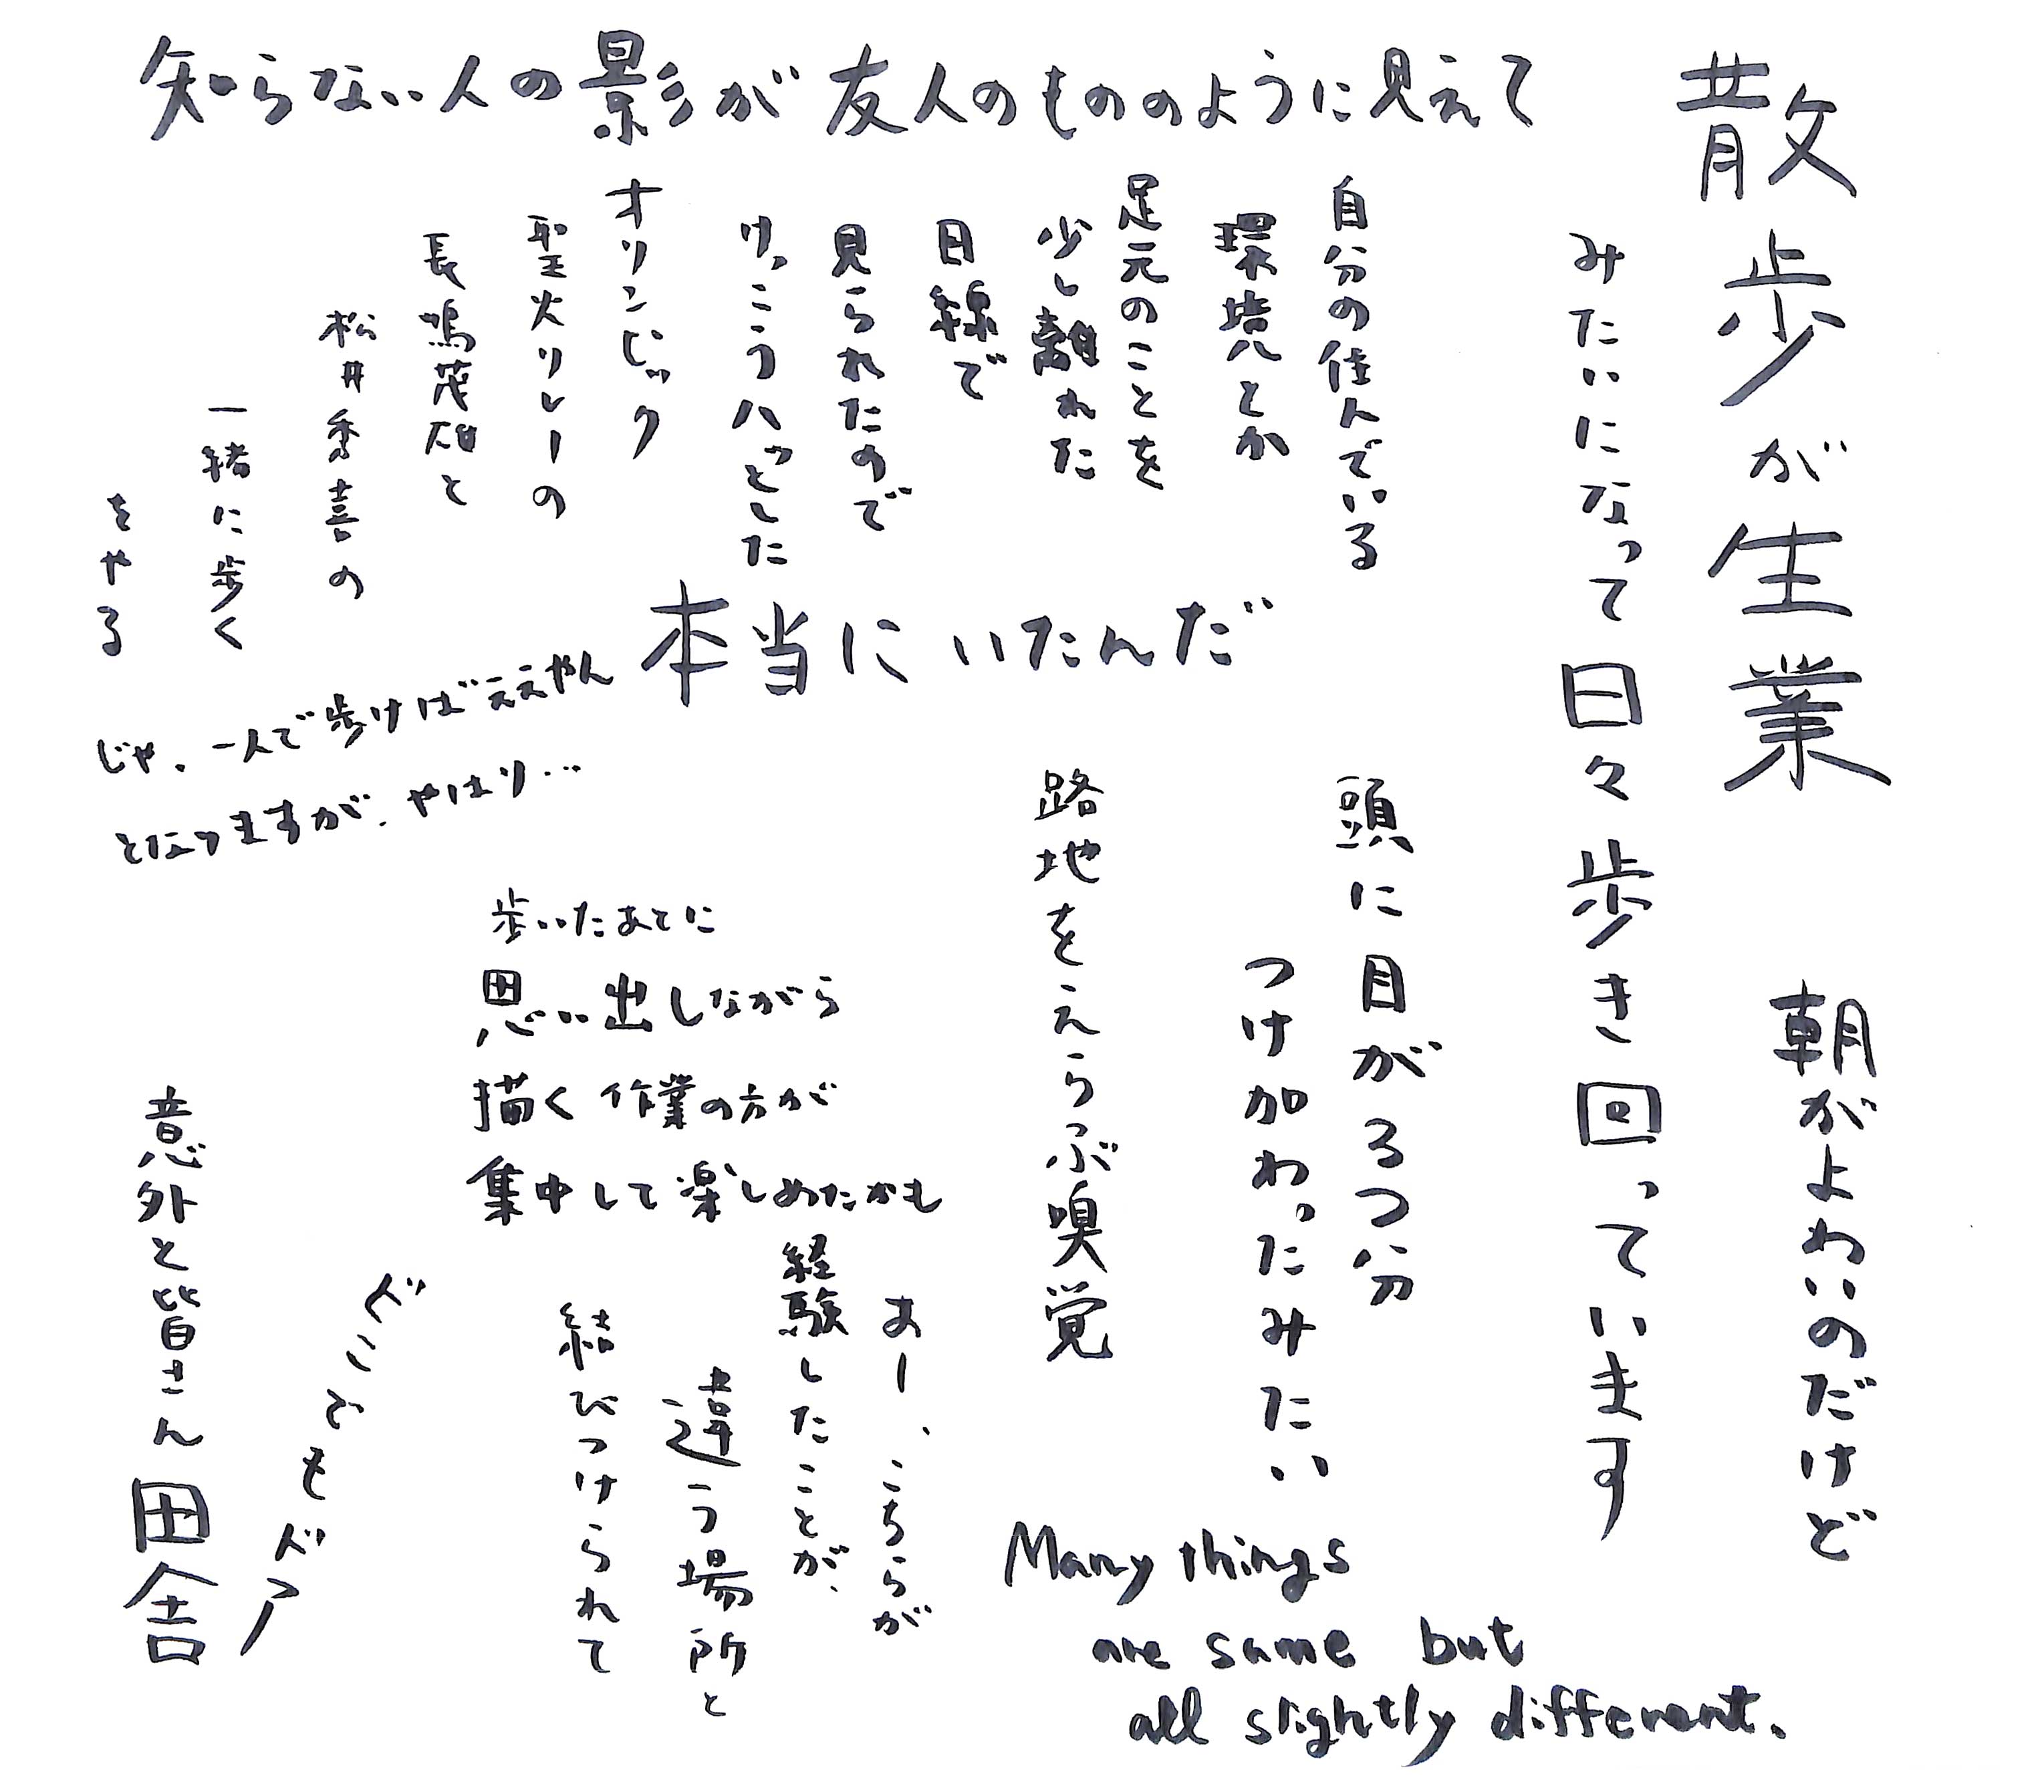 散歩が生業
みたいになって日々歩き回っています
朝がよわいのだけど
知らない人の影が友人のもののように見えて
自分の住んでいる
環境とか
足元のことを
少し離れた
目線で
見られたので
けっこうハッとした
オリンピック
聖火リレーの
長嶋茂雄と
松井秀喜の
一緒に歩く
をやる
本当にいたんだ
じゃ、一人で歩けばええやん
となりますが、やはり…
頭に目がろつ分
つけ加わったみたい
路地をえらぶ嗅覚
歩いたあとに
思い出しながら
描く作業の方が
集中して楽しめたかも
あー、こちらが
経験したことが、
違う場所と
結びつけられて
どこでもドア
意外と皆さん田舎
Many things
are same but
all slightly different.